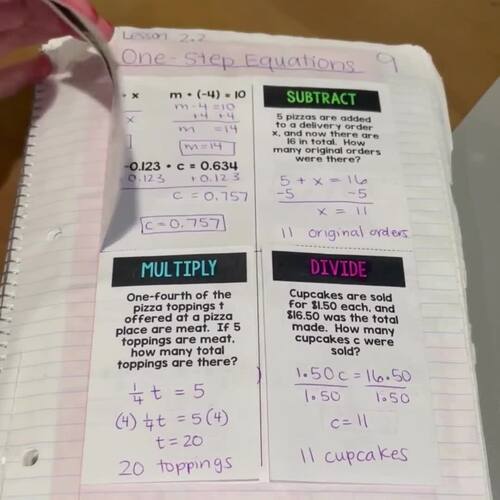 Lesson 2.2
One-Step Equations 9
x
m + (-4) = 10
m - 4 = 10
x
+4 +4
m = 14
m = 14
-0.123 + c = 0.634
0.123 +0.123
c = 0.757
c = 0.757
SUBTRACT
5 pizzas are added
to a delivery order
x, and now there are
16 in total. How
many original orders
were there?
5 + x = 16
-5 -5
x = 11
11 original orders
MULTIPLY
One-fourth of the
pizza toppings t
offered at a pizza
place are meat. If 5
toppings are meat,
how many total
toppings are there?
1/4 t = 5
(4) 1/4 t = 5 (4)
t = 20
20 toppings
DIVIDE
Cupcakes are sold
for $1.50 each, and
$16.50 was the total
made. How many
cupcakes c were
sold?
1.50 c = 16.50
1.50 1.50
c = 11
11 cupcakes